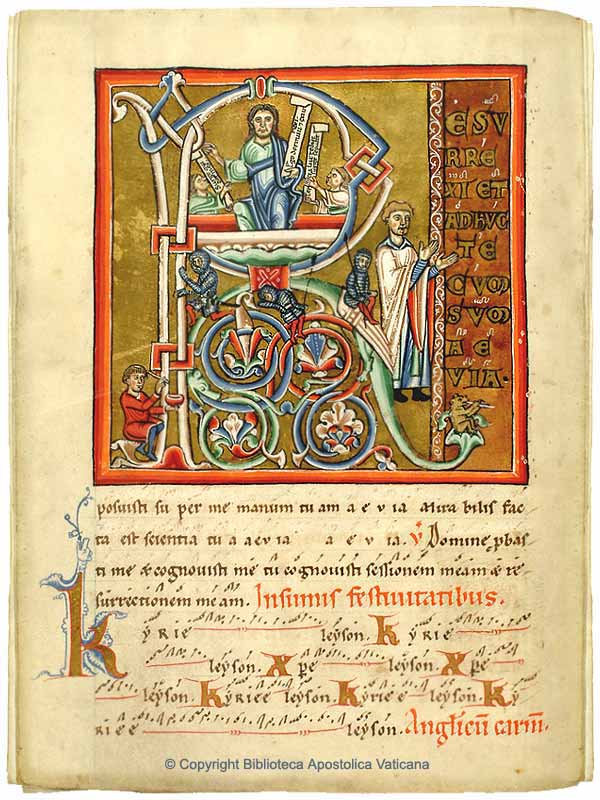 ESV
RRE
XI ET
ADHVC
TE
CVM
SVM
A E
VIA.
posuisti su per me manum tu am a e v ia Mira bilis fac
ta est scientia tu a aevia a e v ia. V Domine pbas
ti me & cognovisti me tu cognovisti sessionem meam & re
surrectionem meam. Insumis festivitatibus.
Kyrie leyson. Kyrie
leyson. Xpe leyson. Xpe
leyson. Kyriee leyson. Kyriee leyson. Ky
riee leyson. Anglicũ carm̃.
© Copyright Biblioteca Apostolica Vaticana